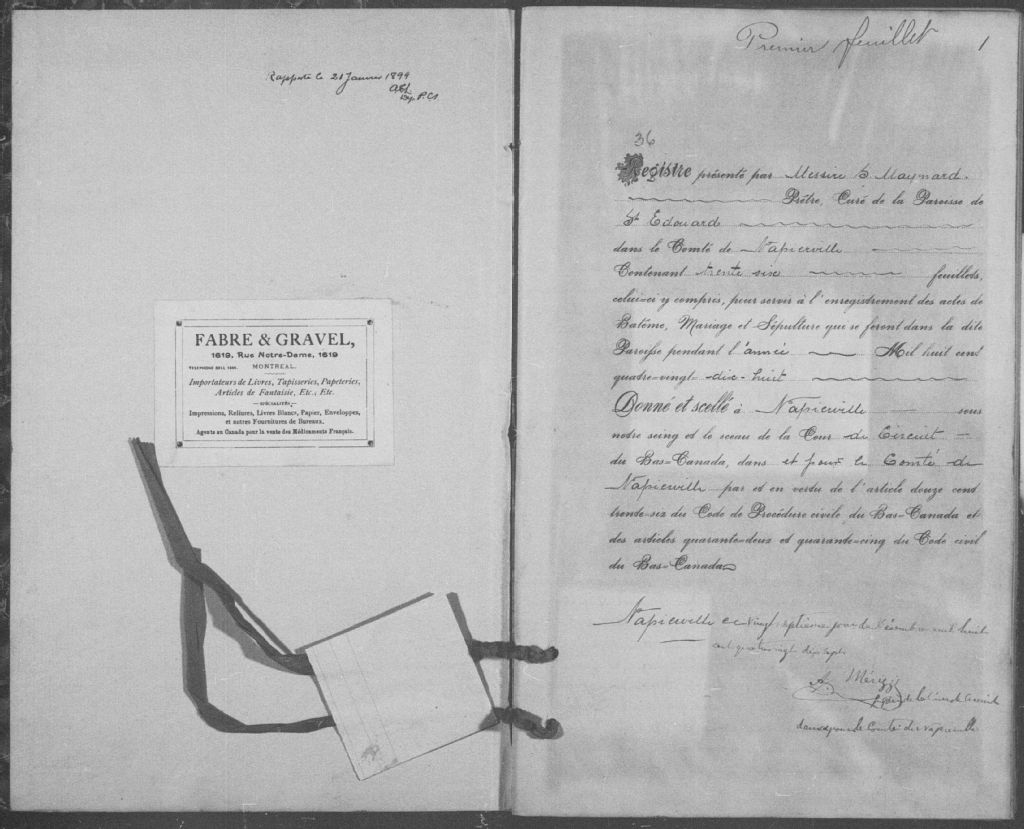 Rapporté le 21 Janvier 1899
Dep. P.C.S.
FABRE & GRAVEL,
1619, Rue Notre-Dame, 1619
TELEPHONE BELL
MONTREAL.
Importateurs de Livres, Tapisseries, Papeteries,
Articles de Fantaisie, Etc., Etc.
SPÉCIALITÉS:
Impressions, Reliures, Livres Blancs, Papier, Enveloppes,
et autres Fournitures de Bureaux.
Agents au Canada pour la vente des Médicaments Français.
Premier feuillet 1
36
Registre présenté par Messire Maynard.
Prêtre, Curé de la Paroisse de
St Edouard
dans le Comté de Napierville
Contenant trente six feuillets,
celui-ci y compris, pour servir à l'enregistrement des actes de
Batême, Mariage et Sépulture qui se feront dans la dite
Paroisse pendant l'année Mil huit cent
quatre-vingt-dix-huit
Donné et scellé à Napierville sous
notre seing et le sceau de la Cour de Circuit
du Bas-Canada, dans et pour le Comté de
Napierville par et en vertu de l'article douze cent
trente-six du Code de Procédure civile du Bas-Canada et
des articles quarante-deux et quarante-cinq du Code civil
du Bas-Canada
Napierville ce vingt septième jour de Décembre mil huit
cent quatre vingt dix sept
Greff. de la Cour de Circuit
dans & pour le Comté de Napierville